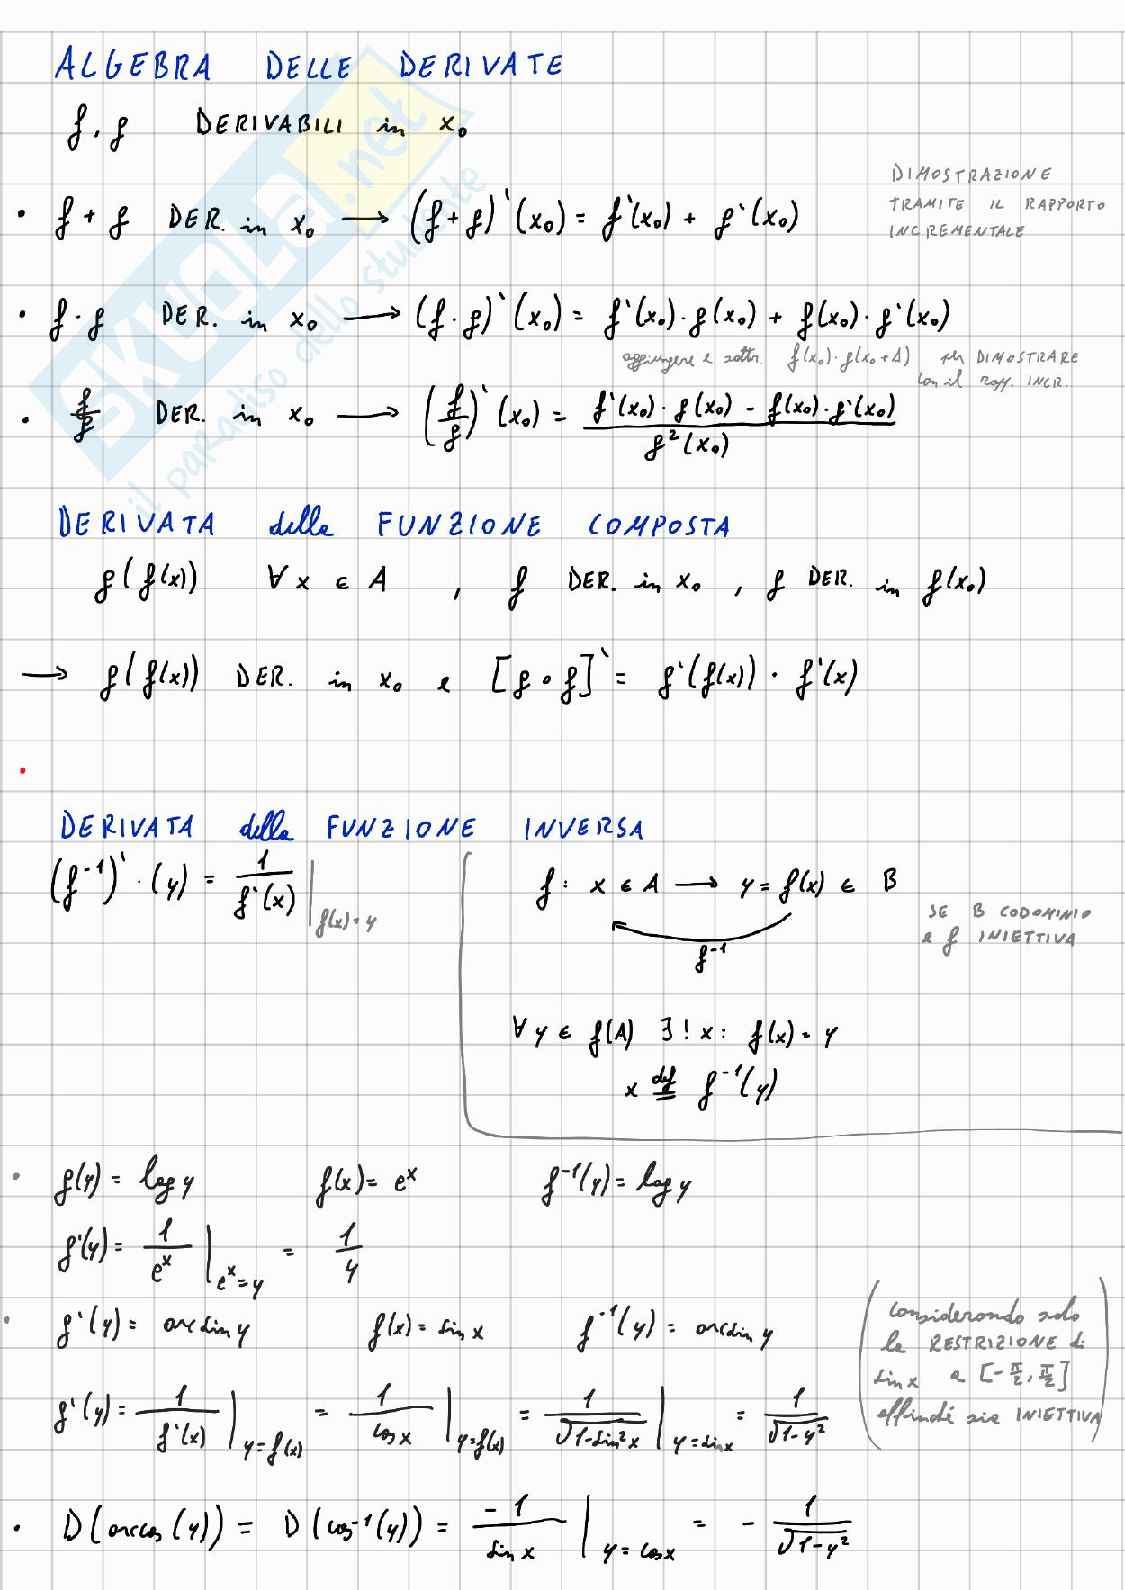 ALGEBRA DELLE DERIVATE
f, g DERIVABILI in x₀
DIMOSTRAZIONE
TRAMITE IL RAPPORTO
INCREMENTALE
• f + g DER. in x₀ ⟶ (f+g)'(x₀) = f'(x₀) + g'(x₀)
• f · g DER. in x₀ ⟶ (f·g)'(x₀) = f'(x₀)·g(x₀) + f(x₀)·g'(x₀)
aggiungere e sottr. f(x₀)·g(x₀+Δ) per DIMOSTRARE
con il rapp. INCR.
• f/g DER. in x₀ ⟶ (f/g)'(x₀) = (f'(x₀)·g(x₀) - f(x₀)·g'(x₀)) / g²(x₀)
DERIVATA della FUNZIONE COMPOSTA
g(f(x)) ∀ x ∈ A , f DER. in x₀ , g DER. in f(x₀)
⟶ g(f(x)) DER. in x₀ e [g∘f]' = g'(f(x)) · f'(x)
DERIVATA della FUNZIONE INVERSA
(f⁻¹)'·(y) = 1/f'(x) |f(x)=y
f: x ∈ A ⟶ y = f(x) ∈ B
f⁻¹
SE B CODOMINIO
e f INIETTIVA
∀ y ∈ f(A) ∃! x: f(x) = y
x def= f⁻¹(y)
• g(y) = log y f(x) = eˣ f⁻¹(y) = log y
g'(y) = 1/eˣ |eˣ=y = 1/y
• g'(y) = arcsin y f(x) = sin x f⁻¹(y) = arcsin y
(considerando solo
la RESTRIZIONE di
sin x a [-π/2, π/2]
affinché sia INIETTIVA)
g'(y) = 1/f'(x) |y=f(x) = 1/cos x |y=f(x) = 1/√(1-sin²x) |y=sin x = 1/√(1-y²)
• D(arccos(y)) = D(cos⁻¹(y)) = -1/sin x |y=cos x = - 1/√(1-y²)
SKUOLA.net
il paradiso dello studente